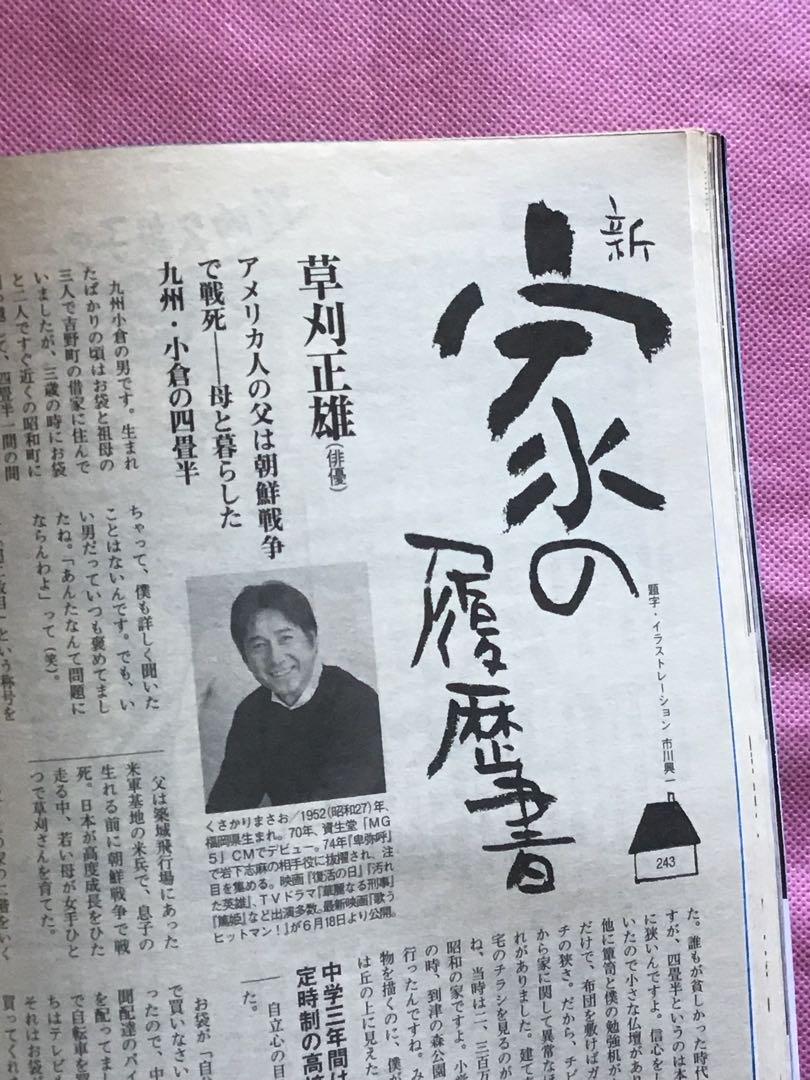 新
家の
履歴書
題字・イラストレーション 市川興一
243
草刈正雄(俳優)
アメリカ人の父は朝鮮戦争
で戦死——母と暮らした
九州・小倉の四畳半
九州小倉の男です。生まれ
たばかりの頃はお袋と祖母の
三人で吉野町の借家に住んで
いましたが、三歳の時にお袋
と二人ですぐ近くの昭和町に
四畳半一間の間
ちゃって、僕も詳しく聞いた
ことはないんです。でも、い
い男だっていつも褒めてまし
たね。「あんたなんて問題に
ならんわよ」って(笑)。
という称号を
くさかりまさお/1952(昭和27)年、
福岡県生まれ。70年、資生堂「MG
5」CMでデビュー。74年『卑弥呼』
で岩下志麻の相手役に抜擢され、注
目を集める。映画『復活の日』『汚れ
た英雄』、TVドラマ『華麗なる刑事』
『篤姫』など出演多数。最新映画『歌う
ヒットマン!』が6月18日より公開。
父は築城飛行場にあった
米軍基地の米兵で、息子の
生れる前に朝鮮戦争で戦
死。日本が高度成長をひた
走る中、若い母が女手ひと
つで草刈さんを育てた。
た。誰もが貧しかった時代
すが、四畳半というのは本
に狭いんですよ。信心を
いたので小さな仏壇があ
他に簞笥と僕の勉強机が
だけで、布団を敷けばガ
チの狭さ。だから、チビ
から家に関して異常な
れがありました。建て
宅のチラシを見るのが
ね、当時は二、三百万
昭和の家ですよ。小学
の時、到津の森公園
行ったんですね。み
物を描くのに、僕が
は丘の上に見えた
中学三年間は
定時制の高校
自立心の目
た。
お袋が「自分
で買いなさい
ったので、中
聞配達のバイ
を配ってま
で自転車を買
ちはテレビも
それはお袋が
買ってくれ